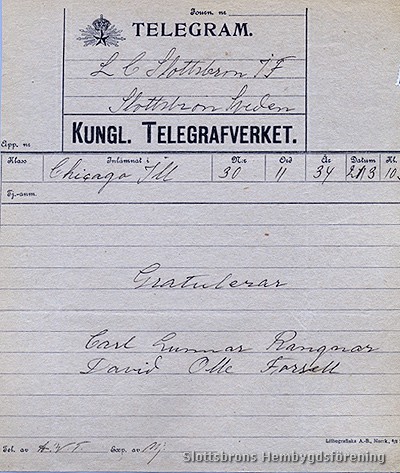 Journ. nr
TELEGRAM.
L C Slottsbron I F
Slottsbron Sweden
Expp. nr
KUNGL. TELEGRAFVERKET.
Klass Inlämnat i N:r Ord År Datum Kl.
Chicago Ill 30 11 34 2/13 10
Tj.-anm.
Gratulerar
Carl Gunnar Rangnar
David Olle Forsell
Tel. av Exp. av
Slottsbrons Hembygdsförening